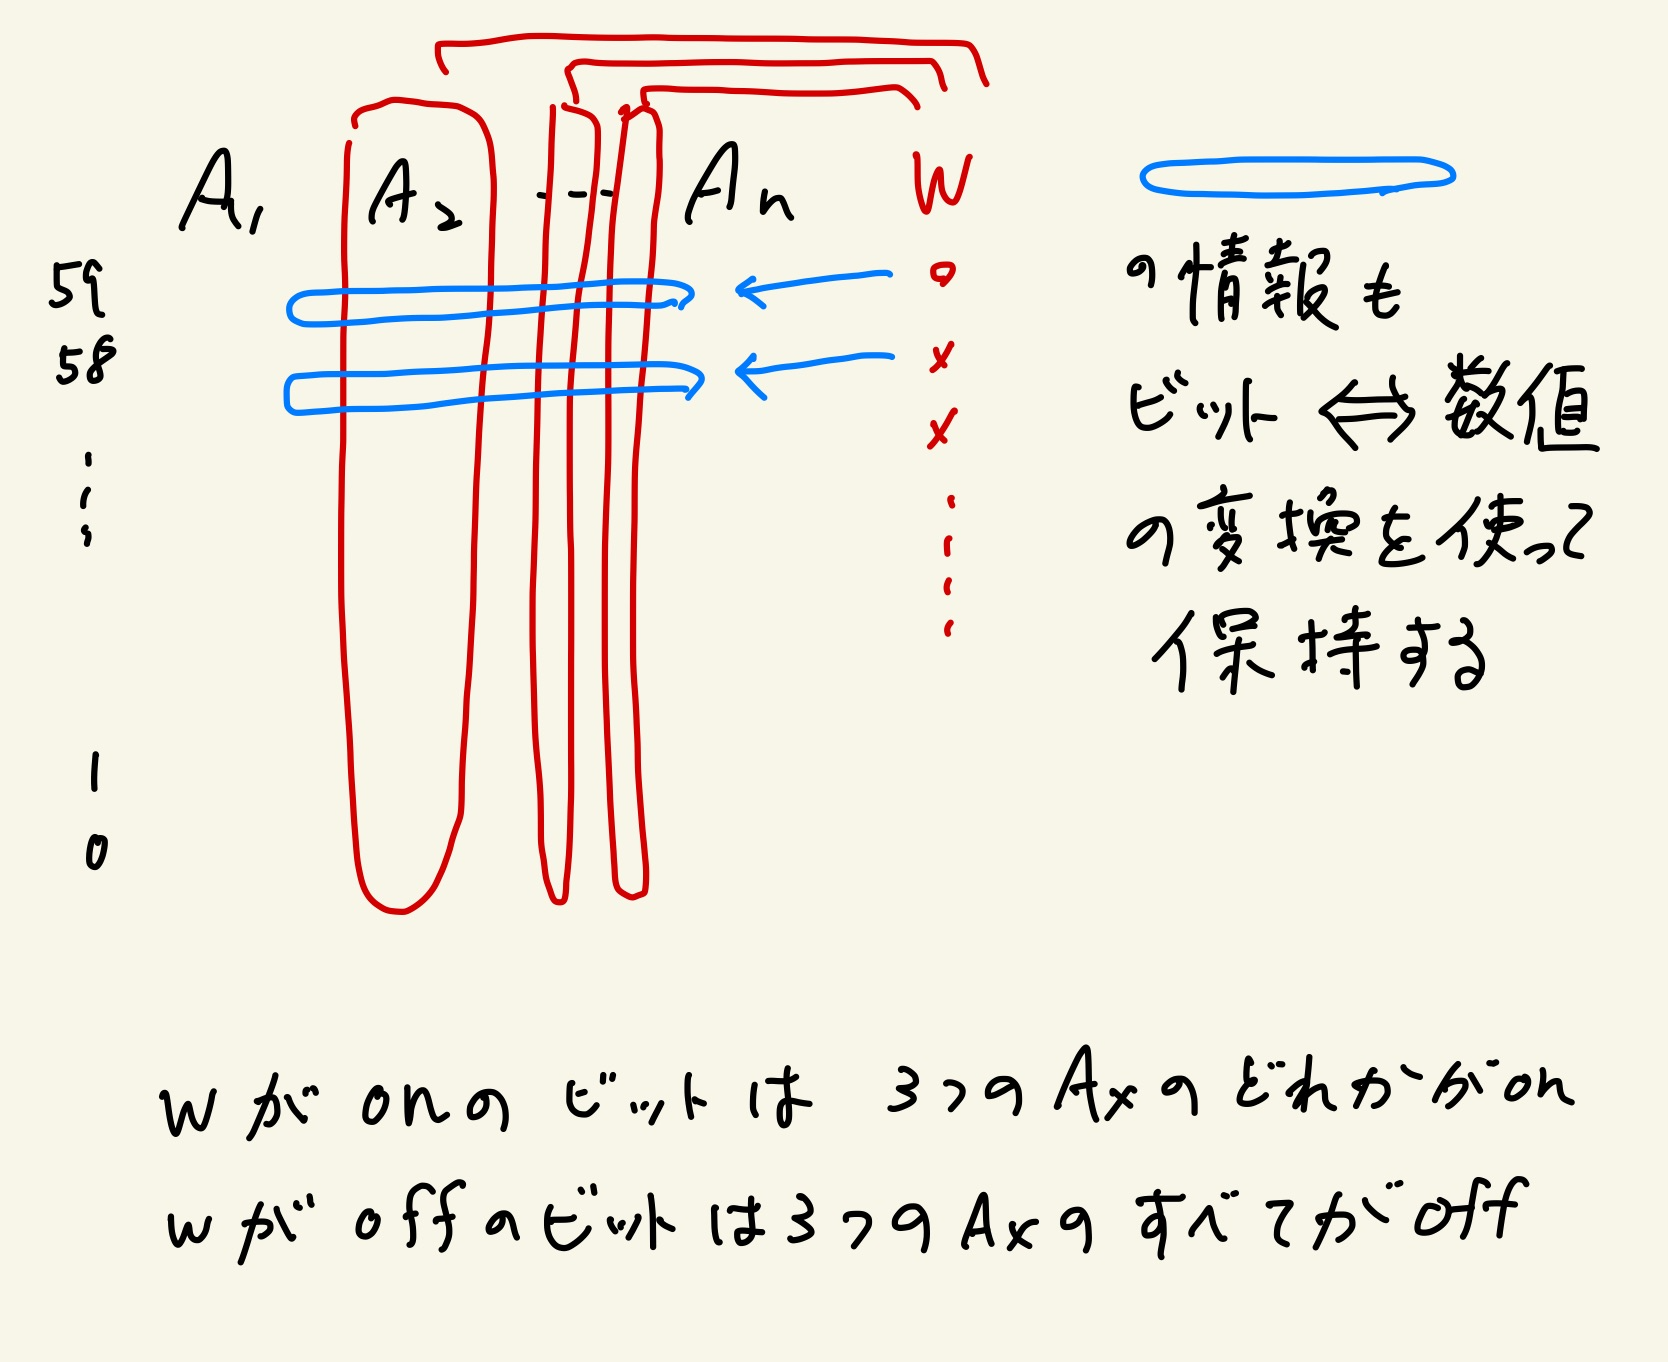 A₁ A₂ --- An W
59 o
58 x
x
1
0
の情報も
ビット ⇔ 数値
の変換を使って
保持する
wがonのビットは 3つのAxのどれかがon
wがoffのビットは3つのAxのすべてがoff